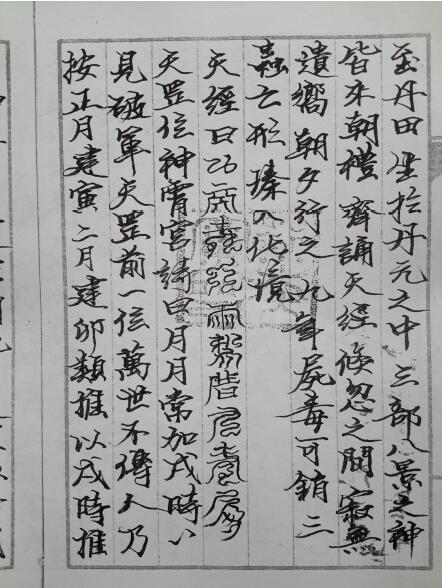 至丹田坐扵丹元之中三部八景之神
皆来朝禮齊誦天經倏忽之間寂無
遺嚮朝夕行之九年屍毒可銷三
蟲亡形臻入化境
天經曰
天罡位神霄宮詩曰月月常加戌時〻
見破軍天罡前一位萬世不傳人乃
按正月建寅二月建卯類推以戌時推